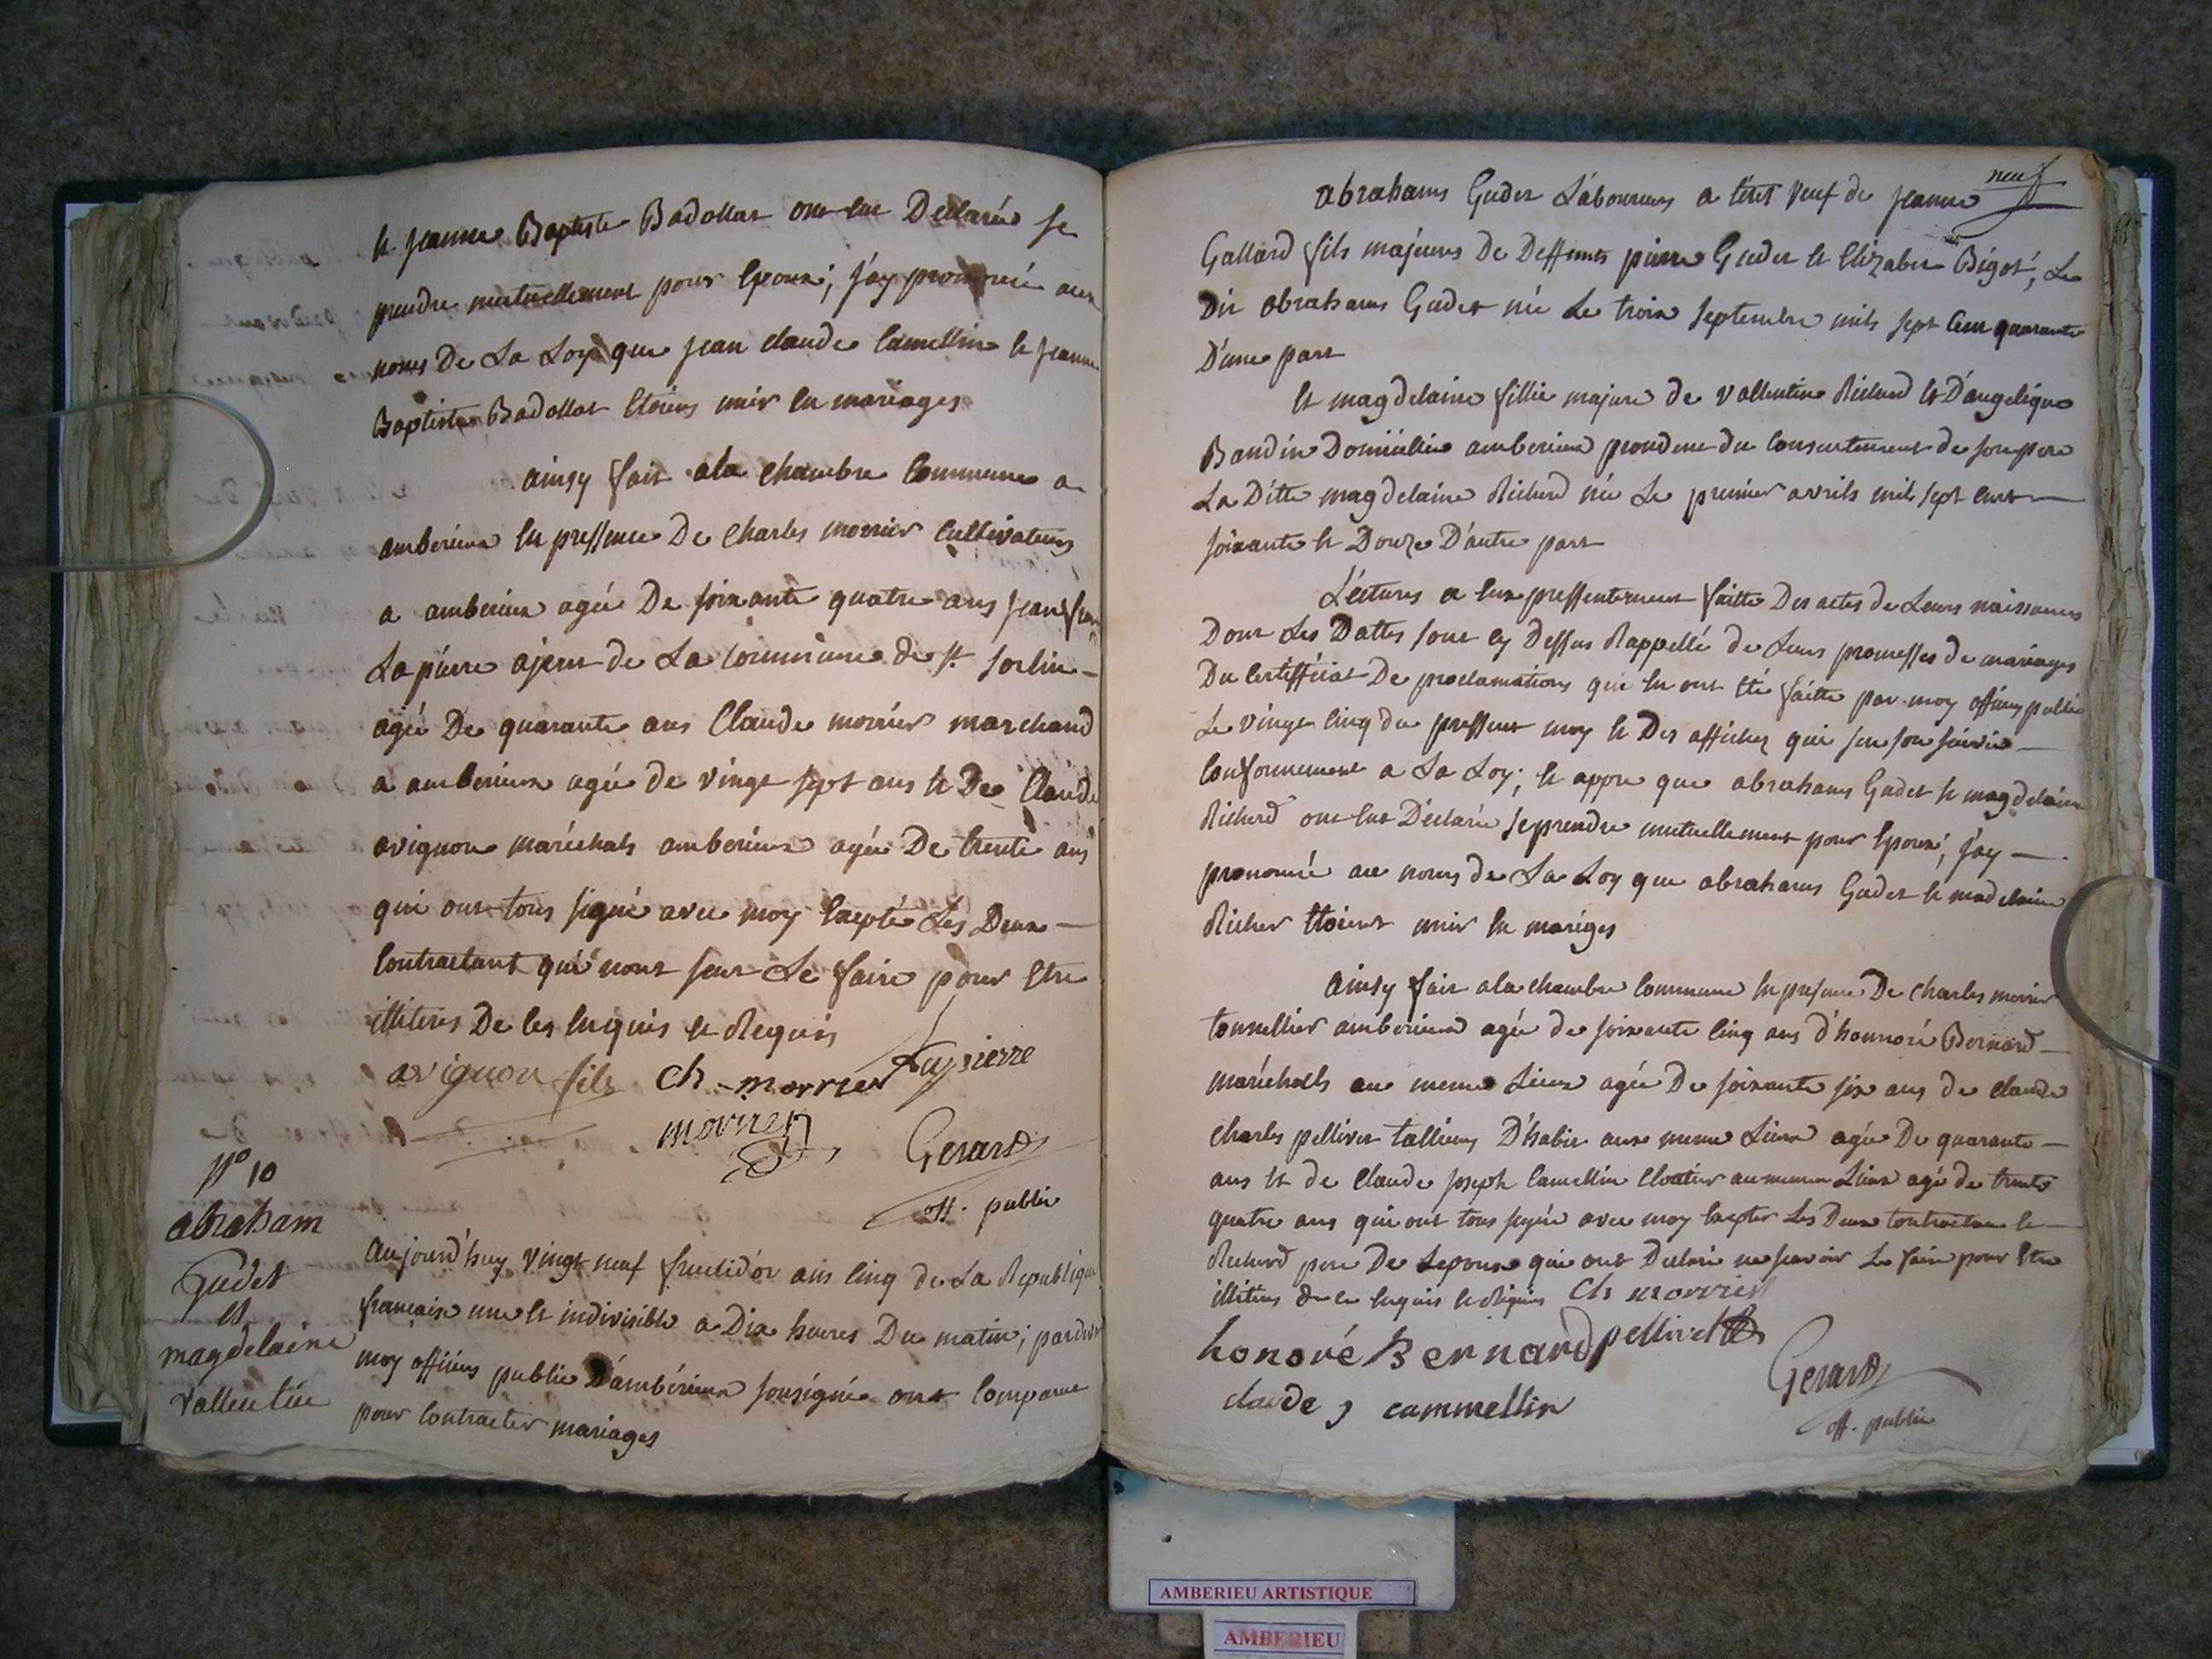 et jeanne Baptiste Badollat ont lue Déclarée se
prendre mutuellement pour Epoux; j'ay prononcé aux
noms De La Loy que jean claude Camellin et jeanne
Baptiste Badollat Etoiens unir En mariages
ainsy fait a la chambre Commune a
amberieux En pressence De Charles morrier Cultivateurs
a amberieux agée De soixante quatre ans jean
Lapierre ajent de La Commune de St. Sorlin
agée De quarante ans Claude morrier marchand
a amberieux agée de vingt sept ans et De Claude
avignon maréchals amberieux agée De trente ans
qui ont tous signé avec moy Excepté Les Deux
Contractant qui n'ont sçut Le faire pour Etre
illiteres De les Enquis et Requis
avignon fils Ch morrier Lapierre
morrier
Gerard
off. public
N° 10
abraham
Gudet
et
magdelaine
vallentin
Aujourd'huy vingt neuf fructid'or ans Cinq de La Republique
française une et indivisible a Dix heures Du matin; pardevt
moy officiers public D'ambérieux sousignée ont Comparue
pour Contracter mariages
neuf
abrahams Gudet Laboureurs a tiret veuf de jeanne
Gallard fils majeurs De Deffunts pierre Gudet et Elizabet Bigot, Le
Dit abrahams Gudet née Le troix septembre mils sept Cent quarante
D'une part
Et magdelaine fillie majure de vallentin Richard et D'angelique
Baudin Domiciliée amberieux proudene du Consentement de son pere
La Ditte magdelaine Richard née Le premier avrils mils sept cent
soixante et Douze D'autre part
Léctures a Eux pressentement faitte Des actes de Leurs naissances
Dont Les Dattes sont cy Dessus Rappellé de Leurs promesses de mariages
Du Certifficat De proclamations qui En ont Eté faitte par moy officiers public
Le vingt Cinq du pressent moy et Des affichez qui s'en son suivie
Conformement a La Loy; et appre que abrahams Gudet et magdelaine
Richard ont Eux Déclarée se prendre mutuellement pour Epoux, j'ay
prononcé aux noms de La Loy que abrahams Gudet et madelaine
Richer Etoient unir En mariges
Ainsy fait a la chambre Commune En presence De Charles morrier
tonnellier amberieux agée de soixante Cinq ans d'honnoré Bernard
maréchalls au meme Lieux agée De soixante six ans de claude
Charles pellivet tallieurs D'habit aux meme Lieux agée De quarante
ans Et de Claude joseph Camellin Cloutier au meme Lieux agé de trente
quatre ans qui ont tous signée avec moy Excepter Les Deux Contractans et
Richard pere De Lepouse qui ont Declaré ne scavoir Le faire pour Etre
illiteres de ce Enquis et Requis Ch morrier
honoré Bernard pellivet
claude j cammellin
Gerard
off. public
AMBERIEU ARTISTIQUE
AMBERIEU